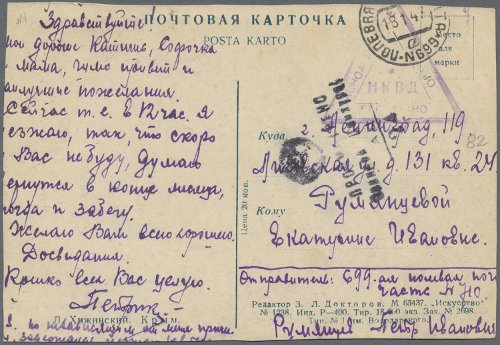 Здравствуйте!
мои дорогие Катюша, Сафочка
и мама, шлю привет и
наилучшие пожелания.
Сейчас т.е. в 12 час. я
уезжаю, так, что скоро
у Вас не буду, думаю
вернуться в конце месяца,
тогда и забегу.
Желаю Вам всего хорошего.
Досвидания.
Крепко всех Вас целую.
Петрик
Л. Хижинский. Крым.
ПОЧТОВАЯ КАРТОЧКА
POSTA KARTO
Место
для
марки
ПОЛЕВАЯ ПОЧТА
№699
НКВД
Куда г. Ленинград, 119
д. 131 кв. 24
82
Кому Румянцевой
Екатерине Ивановне.
Цена 20 коп.
Отправитель: 699-ая полевая почта
часть №710
Редактор З. Л. Докторов. М 63437. "Искусство"
№ 1238. Инд. Р—400. Тир. 18.000 экз. Зак. № 2698.
Тип. № 1 им. Володарского.
Румянцев Петр Иванович